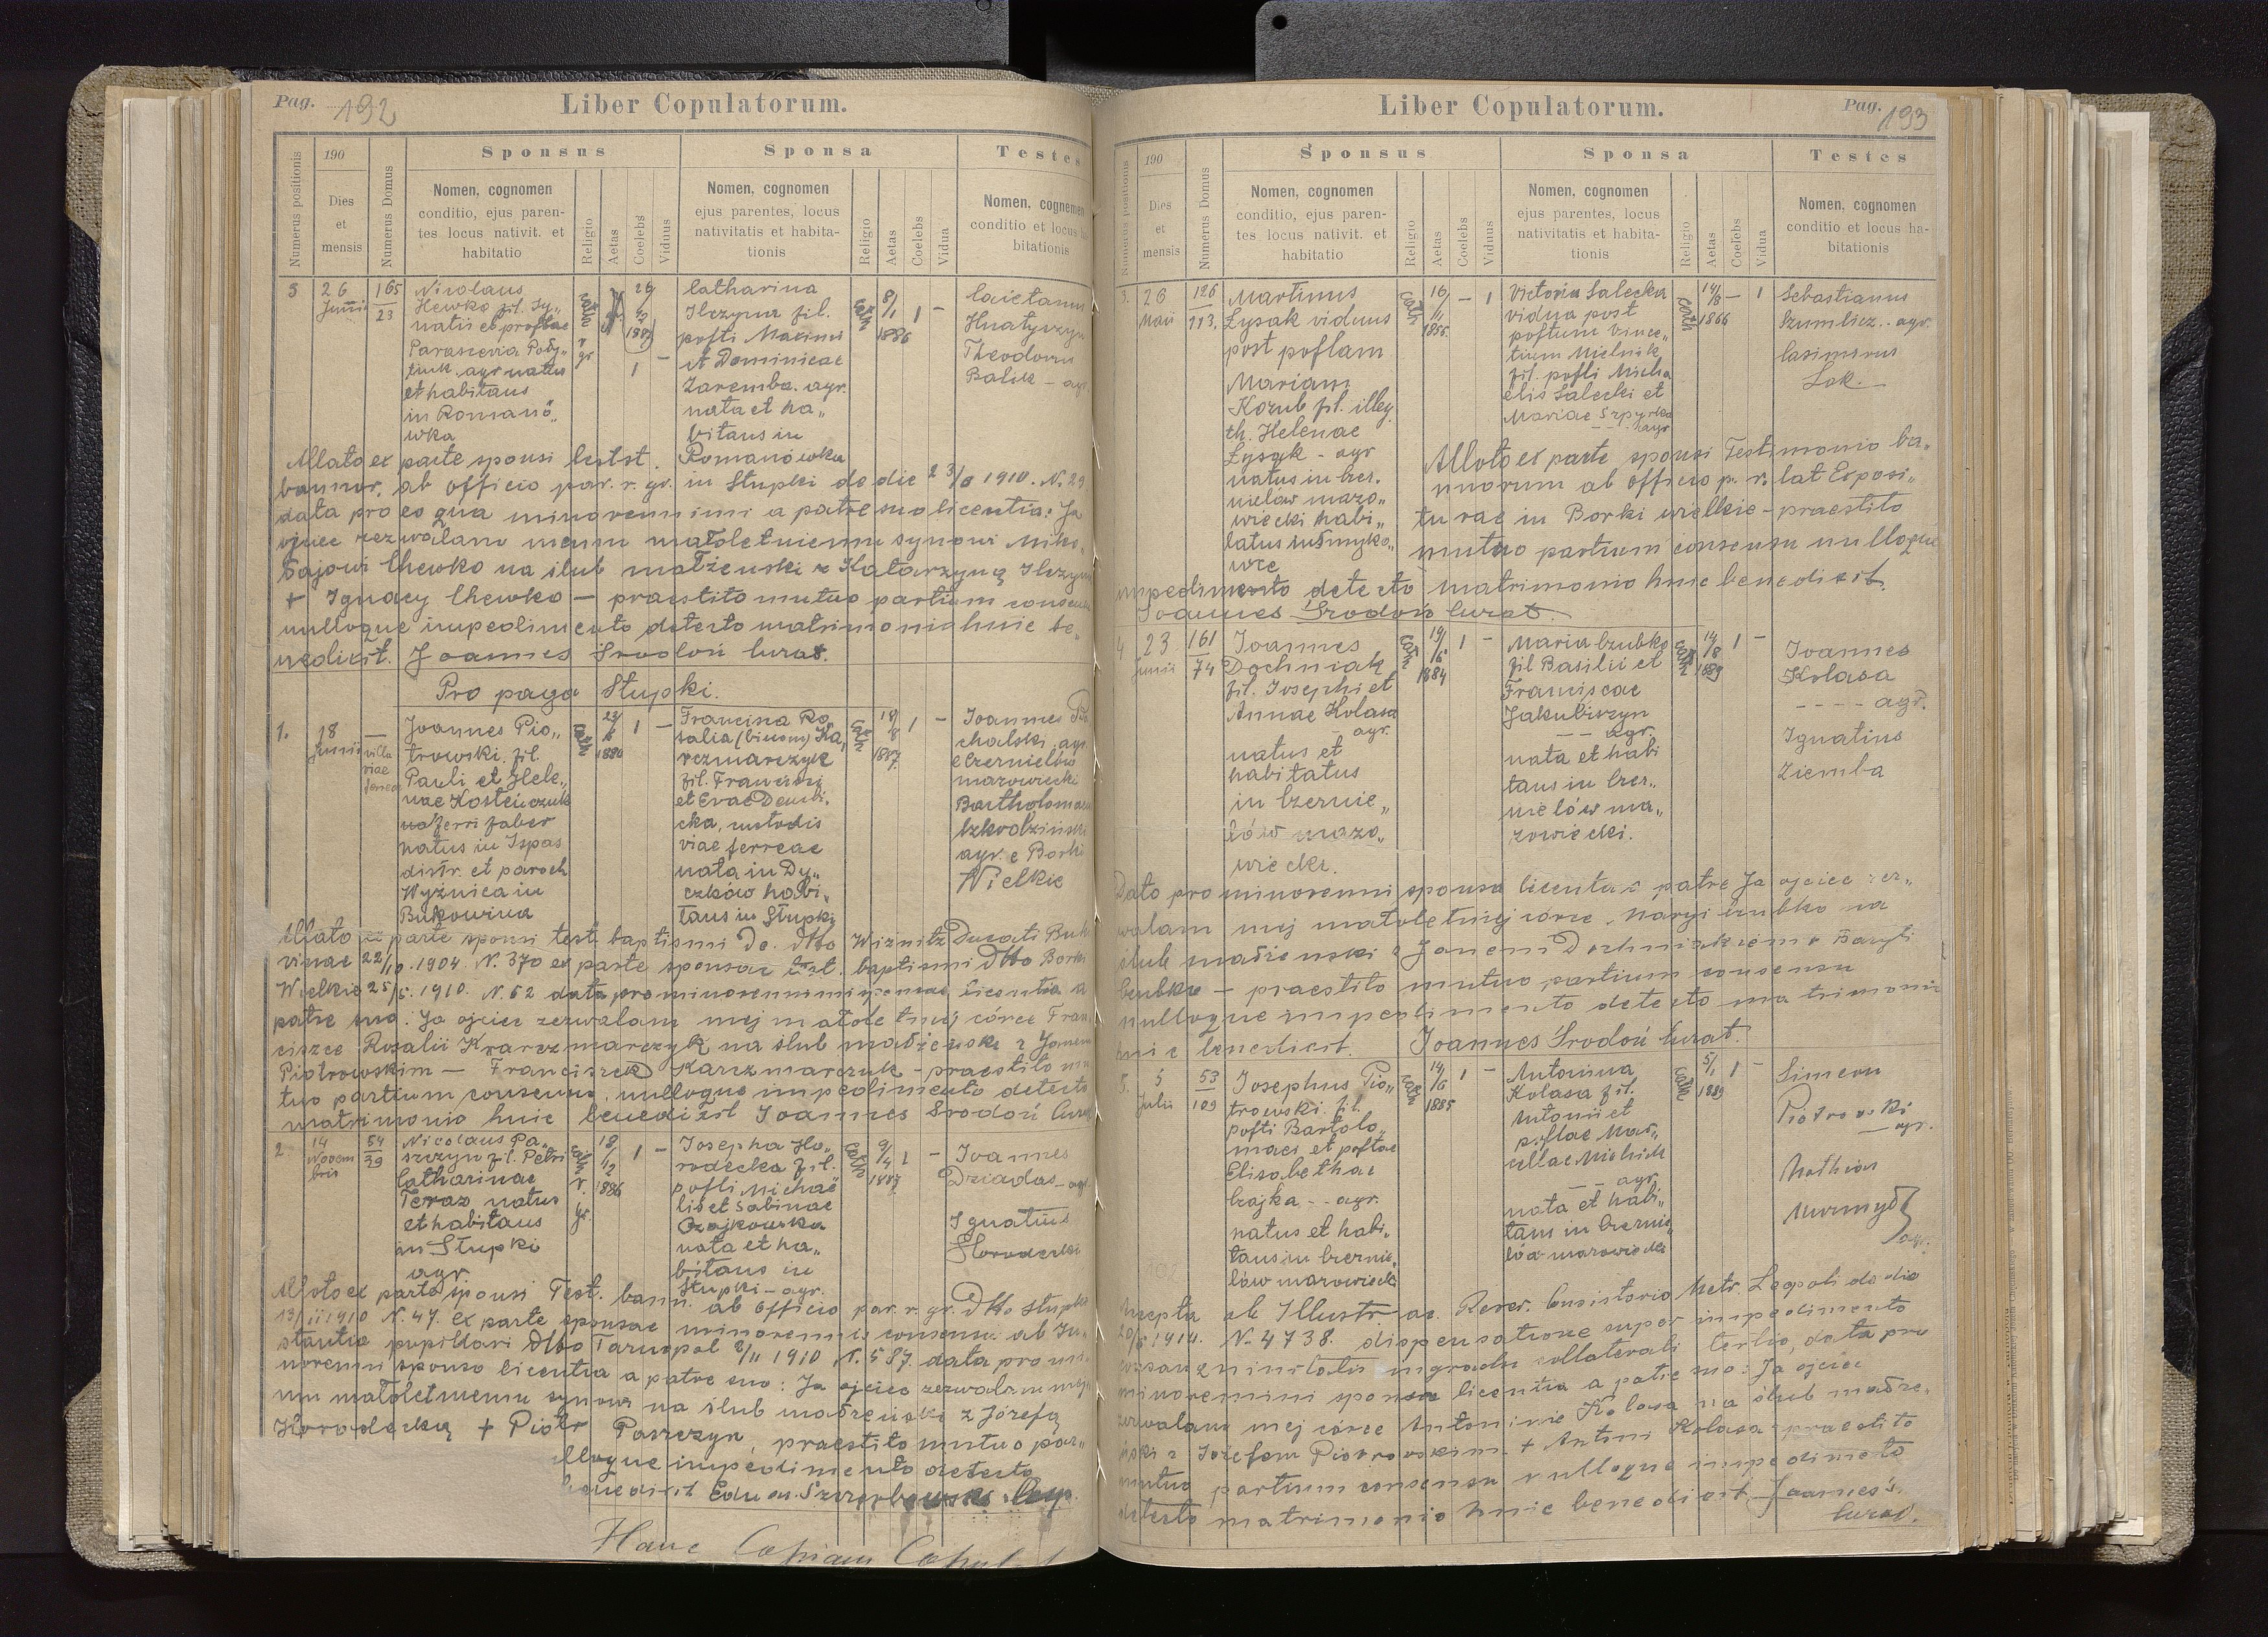 Pag. 192
Liber Copulatorum.
Numerus positionis
190
Dies
et
mensis
Numerus Domus
Sponsus
Nomen, cognomen
conditio, ejus paren-
tes locus nativit. et
habitatio
Religio
Aetas
Coelebs
Viduus
Sponsa
Nomen, cognomen
ejus parentes, locus
nativitatis et habita-
tionis
Religio
Aetas
Coelebs
Vidua
Testes
Nomen, cognomen
conditio et locus ha-
bitationis
3
26
Junii
165
23
Nicolaus
Hewko fil. Ig„
natii et
Parascevia
agr natus
et habitans
in Romanó„
wka
1
Catharina
Ilczyna fil.
A Dominicae
Zaremba. agr.
nata et ha„
bitans in
Romanówka
8/1
1886
1 –
Caietanus
Theodorus
Balik – agr
Allato ex parte sponsi testst.
bannor. ab officio par. r. gr. in Stupki de die 23/6 1910. N. 29
data pro eo qua minorenni a patre suo licentia: Ja
ojciec zezwalam memu małoletniemu synowi Miko„
łajowi Chewko na ślub małżeński z Katarzyną Ilczyna
+ Ignacy Chewko – praestito mutuo partium consensu
nulloque impedimento detecto matrimonio huic be„
nedixit. Joannes Srodoń Curat.
Pro pago Stupki.
1.
18
Junii
villa
viae
ferreae
Joannes Pio„
trowski. fil.
Pauli et Hele„
nae
ferri faber
natus in Ispas
distr. et paroch
Wyżnica in
Bukowina
1880
1 –
Francisca Ro„
salia (binom) Ka„
rczmarczyk
fil. Francisci
et Evae Dembi„
cka, custodis
viae ferreae
nata in Dy„
czków habi„
tans in Stupki
18/8
1887
1 –
Joannes
chalski agr.
e Czernielów
mazowiecki
Bartholomaeus
agr. e Borki
Wielkie
Allato ex parte sponsi test. baptismi de. dtto Wiżnitz Ducati Buko
vinae 22/10. 1904. N. 370 ex parte sponsae test. baptismi dtto Borki
Wielkie 25/5. 1910. N. 62 data pro minorenni sponsae licentia a
patre suo: Ja ojciec zezwalam mej małoletniej córce Fran
ciszce Rozalii Karczmarczyk na ślub małżeński z Janem
Piotrowskim – Franciszek Karczmarczyk – praestito mu
tuo partium consensu, nulloque impedimento detecto
matrimonio huic benedixit Joannes Srodoń Curat
2
14
Novem
bris
54
29
Nicolaus Pa„
szczyn fil. Petri
Catharinae
Teraz natus
et habitans
in Stupki
agr
18/12
1886
1 –
Josepha Ho„
rodecka fil.
Michaë
lis et Sabinae
Czajkowska
nata et ha„
bitans in
Stupki – agr.
9/4
1887
1 –
Joannes
Dziadas – agr
Ignatius
Horodecki
Allato ex parte sponsi Test. bann. ab officio par. r. gr. dtto Stupki
13/11 1910 N. 47. ex parte sponsae minorennis consensu ab In„
stantia pupillari dtto Tarnopol 2/11 1910 N. 587. data pro mi„
norenni sponso licentia a patre suo: Ja ojciec zezwalam mej
mu małoletniemu synowi na ślub małżeński z Józefą
Horodecką + Piotr Paszczyn, praestito mutuo par„
lloque impedimento detecto
benedixit
Hanc Copiam
Liber Copulatorum.
Pag. 193
Numerus positionis
190
Dies
et
mensis
Numerus Domus
Sponsus
Nomen, cognomen
conditio, ejus paren-
tes locus nativit. et
habitatio
Religio
Aetas
Coelebs
Viduus
Sponsa
Nomen, cognomen
ejus parentes, locus
nativitatis et habita-
tionis
Religio
Aetas
Coelebs
Vidua
Testes
Nomen, cognomen
conditio et locus ha-
bitationis
3.
26
Maii
126
113.
Martinus
Łysak viduus
post
Mariam
Kozub fil. illeg.
th. Helenae
Łysak – agr
natus in Czer„
nielów mazo„
wiecki habi„
16/11
1855.
– 1
Victoria Salecka
vidua post
Vincen„
tium Mielnik
fil. Micha
elis Salecki et
Mariae
agr
14/8
1866
– 1
Sebastianus
agr.
Casimirus
Sak.
Allato ex parte sponsi Testimonio ba„
nnorum ab officio p. r. lat Exposi„
turae in Borki wielkie – praestito
mutuo partium consensu nulloque
impedimento detecto matrimonio huic benedixit.
Joannes Srodoń Curat.
4
23
Junii
161
74
Joannes
Dochniak
fil. Josephi et
Annae Kolasa
agr.
natus et
habitatus
in Czernie„
lów mazo„
wiecki.
1884
1 –
Maria Czubko
fil Basilii et
Franciscae
Jakubiszyn
agr.
nata et habi
tans in Czer„
nielów ma„
zowiecki.
14/8
1889
1 –
Joannes
Kolasa
agr.
Ignatius
Ziemba
Dato pro minorenni sponsa licentia a patre Ja ojciec zez„
walam mej małoletniej córce Maryi Czubko na
ślub małżeński z Janem Dochniakiem + Bazyli
Czubko – praestito mutuo partium consensu
nulloque impedimento detecto matrimonio
huic benedixit. Joannes Środoń Curat.
5.
5
Julii
53
109
Josephus Pio„
trowski. fil.
Bartolo„
maei et
Elisabethae
Czajka – agr.
natus et habi„
tans in Czernie„
lów mazowiecki
14/6
1885
1 –
Antonina
Kolasa fil.
Antonii et
Mar„
cellae
agr.
nata et habi„
tans in Czernie„
lów mazowiecki
5/1
1889
1 –
Simeon
Piotrowski
agr.
Mathias
agr.
Accepta ab Illustr. ac. Rever. Consistorio Metr. Leopoli de die
1910. N. 4738. dispensatione super impedimento
consanguinitatis in gradu collaterali tertio, data pro
minorenni sponsa licentia a patre suo: Ja ojciec
zezwalam mej córce Antoninie Kolasa na ślub małże„
ński z Józefem Piotrowskim + Antoni Kolasa – praestito
mutuo partium consensu nulloque impedimento
detecto matrimonio huic benedixit Joannes Ś.
Curat.